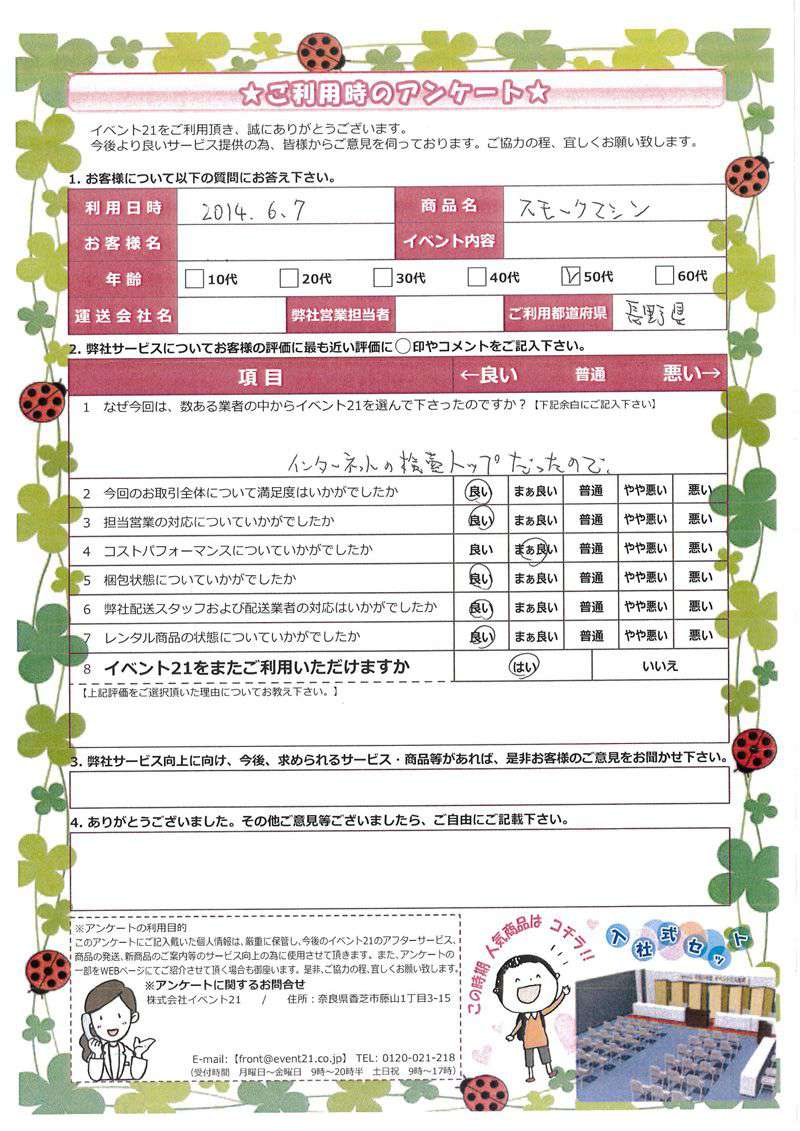 ★ご利用時のアンケート★
イベント21をご利用頂き、誠にありがとうございます。
今後より良いサービス提供の為、皆様からご意見を伺っております。ご協力の程、宜しくお願い致します。
1. お客様について以下の質問にお答え下さい。
利用日時 2014. 6、7 商品名 スモークマシン
お客様名 イベント内容
年齢 10代 20代 30代 40代 50代 60代
運送会社名 弊社営業担当者 ご利用都道府県 長野県
2. 弊社サービスについてお客様の評価に最も近い評価に◯印やコメントをご記入下さい。
項目 ←良い 普通 悪い→
1 なぜ今回は、数ある業者の中からイベント21を選んで下さったのですか？【下記余白にご記入下さい】
インターネットの検索トップだったので、
2 今回のお取引全体について満足度はいかがでしたか 良い まぁ良い 普通 やや悪い 悪い
3 担当営業の対応についていかがでしたか 良い まぁ良い 普通 やや悪い 悪い
4 コストパフォーマンスについていかがでしたか 良い まぁ良い 普通 やや悪い 悪い
5 梱包状態についていかがでしたか 良い まぁ良い 普通 やや悪い 悪い
6 弊社配送スタッフおよび配送業者の対応はいかがでしたか 良い まぁ良い 普通 やや悪い 悪い
7 レンタル商品の状態についていかがでしたか 良い まぁ良い 普通 やや悪い 悪い
8 イベント21をまたご利用いただけますか はい いいえ
【上記評価をご選択頂いた理由についてお教え下さい。】
3. 弊社サービス向上に向け、今後、求められるサービス・商品等があれば、是非お客様のご意見をお聞かせ下さい。
4. ありがとうございました。その他ご意見等ございましたら、ご自由にご記載下さい。
※アンケートの利用目的
このアンケートにご記入戴いた個人情報は、厳重に保管し、今後のイベント21のアフターサービス、
商品の発送、新商品のご案内等のサービス向上の為に使用させて頂きます。また、アンケートの
一部をWEBページにてご紹介させて頂く場合も御座います。是非、ご協力の程、宜しくお願い致します。
※アンケートに関するお問合せ
株式会社イベント21 / 住所：奈良県香芝市藤山1丁目3-15
E-mail：【front@event21.co.jp】 TEL：0120-021-218
（受付時間 月曜日～金曜日 9時～20時半 土日祝 9時～17時）
この時期 人気商品は コチラ!!
入社式セット